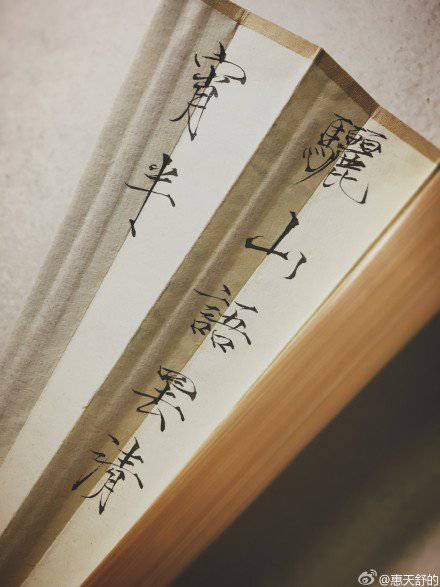 驪山語罢清
宵半
@惠天舒的